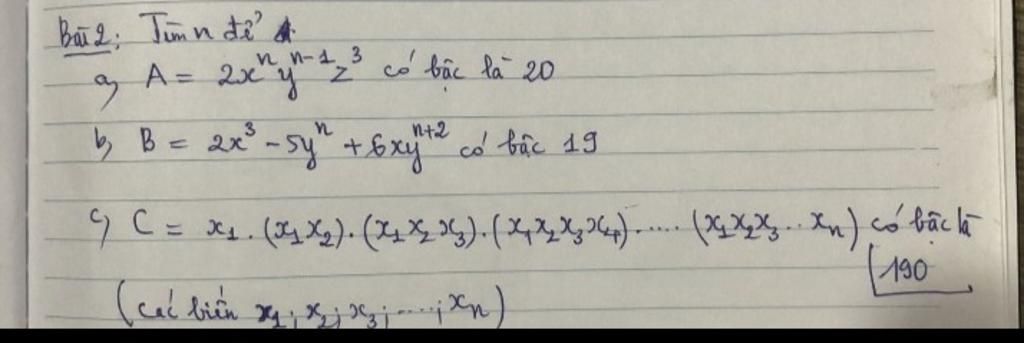 Bài 2: Tìm n để
a, A = 2xⁿyⁿ⁻¹z³ có bậc là 20
b, B = 2x³ - 5yⁿ + 6xyⁿ⁺² có bậc 19
c, C = x₁.(x₁x₂).(x₁x₂x₃).(x₁x₂x₃x₄).....(x₁x₂x₃...xₙ) có bậc là
190
(các biến x₁; x₂; x₃; ....; xₙ)